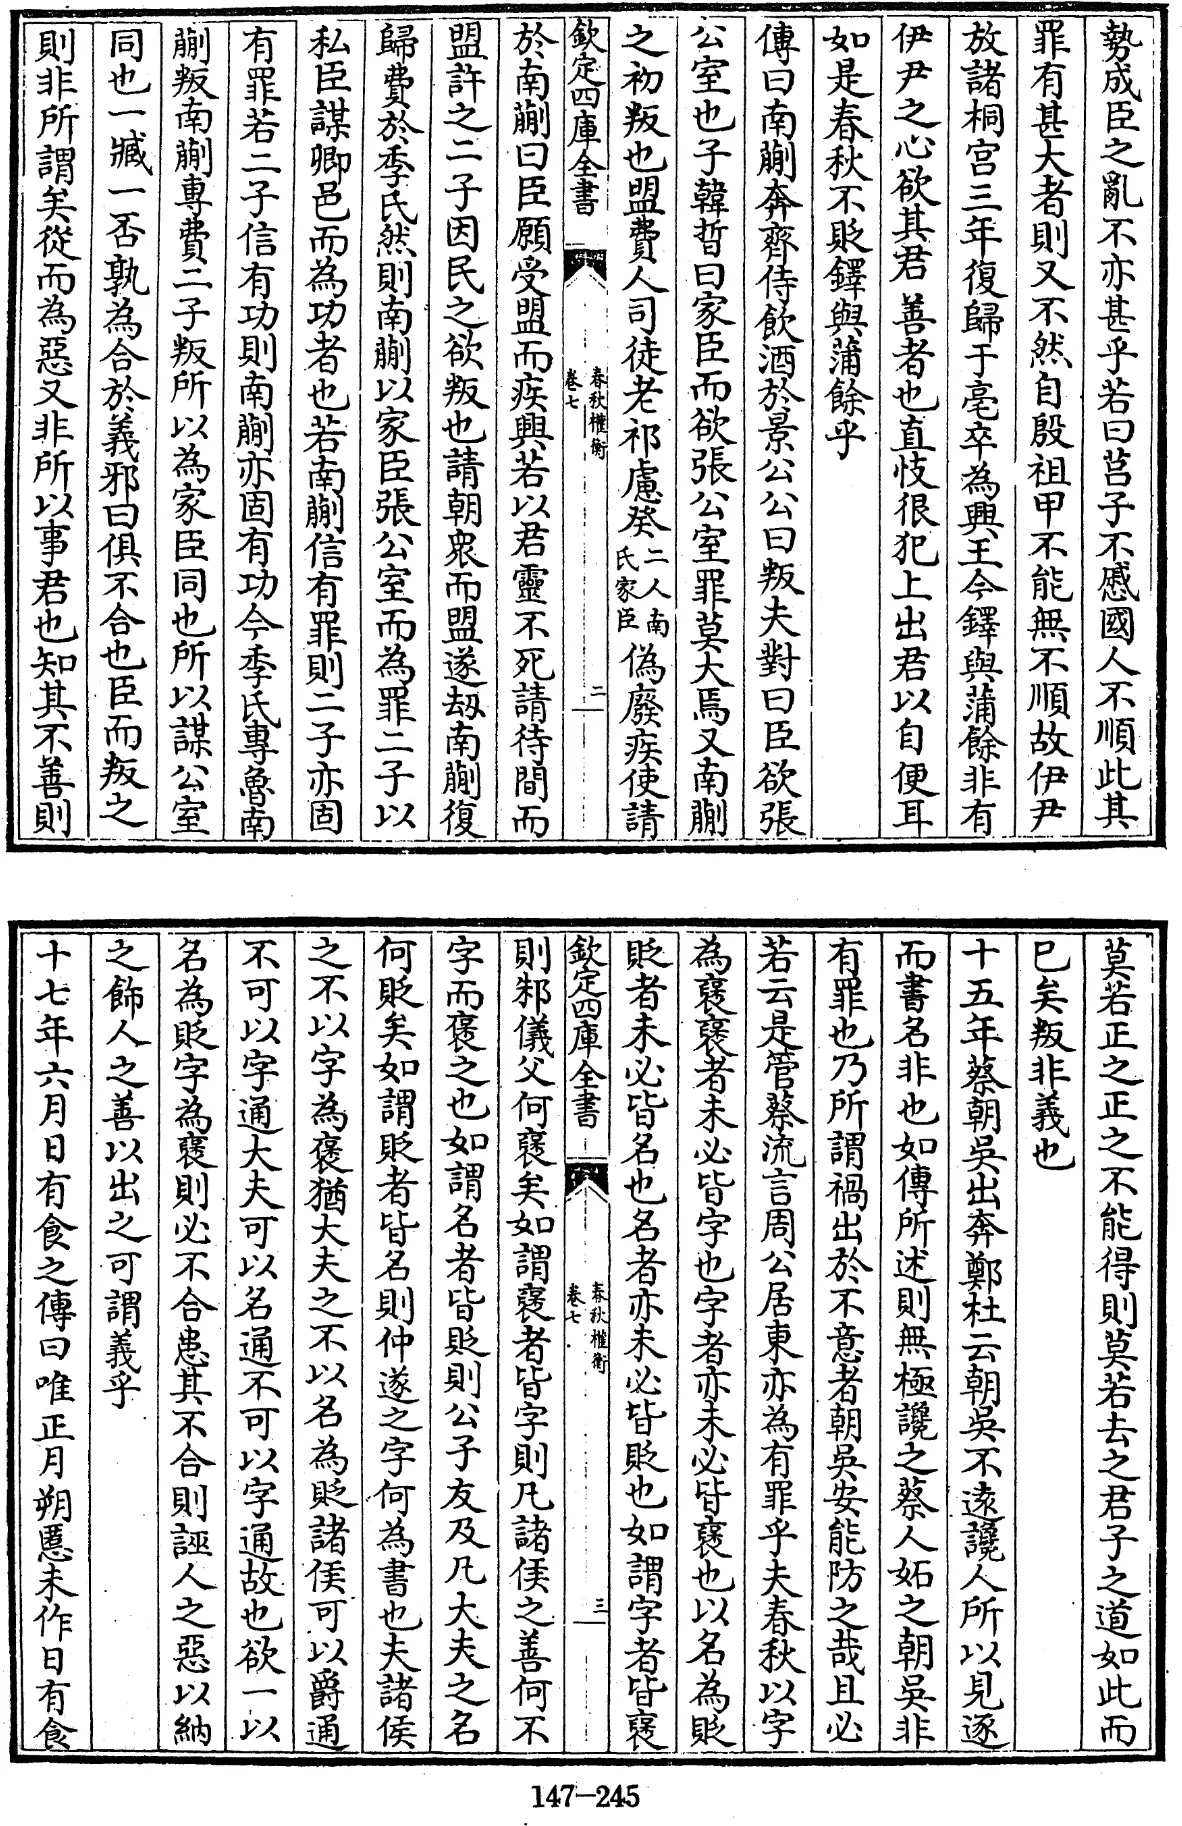 勢成臣之亂不亦甚乎若曰莒子不慼國人不順此其
罪有甚大者則又不然自殷祖甲不能無不順故伊尹
放諸桐宫三年復歸于亳卒為興王今鐸與蒲餘非有
伊尹之心欲其君善者也直忮很犯上出君以自便耳
如是春秋不貶鐸與蒲餘乎
傳曰南蒯奔齊侍飲酒於景公公曰叛夫對曰臣欲張
公室也子韓晳曰家臣而欲張公室罪莫大焉又南蒯
之初叛也盟費人司徒老祁慮癸二人南氏家臣偽廢疾使請
欽定四庫全書
春秋權衡
卷七
二
於南蒯曰臣願受盟而疾興若以君靈不死請待間而
盟許之二子因民之欲叛也請朝衆而盟遂刼南蒯復
歸費於季氏然則南蒯以家臣張公室而為罪二子以
私臣謀卿邑而為功者也若南蒯信有罪則二子亦固
有罪若二子信有功則南蒯亦固有功今季氏專魯南
蒯叛南蒯專費二子叛所以為家臣同也所以謀公室
同也一臧一否孰為合於義邪曰俱不合也臣而叛之
則非所謂矣從而為惡又非所以事君也知其不善則
莫若正之正之不能得則莫若去之君子之道如此而
已矣叛非義也
十五年蔡朝吳出奔鄭杜云朝吳不遠讒人所以見逐
而書名非也如傳所述則無極讒之蔡人妬之朝吳非
有罪也乃所謂禍出於不意者朝吳安能防之哉且必
若云是管蔡流言周公居東亦為有罪乎夫春秋以字
為褒褒者未必皆字也字者亦未必皆褒也以名為貶
貶者未必皆名也名者亦未必皆貶也如謂字者皆褒
欽定四庫全書
春秋權衡
卷七
三
則邾儀父何褒矣如謂褒者皆字則凡諸侯之善何不
字而褒之也如謂名者皆貶則公子友及凡大夫之名
何貶矣如謂貶者皆名則仲遂之字何為書也夫諸侯
之不以字為褒猶大夫之不以名為貶諸侯可以爵通
不可以字通大夫可以名通不可以字通故也欲一以
名為貶字為褒則必不合患其不合則誣人之惡以納
之飾人之善以出之可謂義乎
十七年六月日有食之傳曰唯正月朔慝未作日有食
147-245